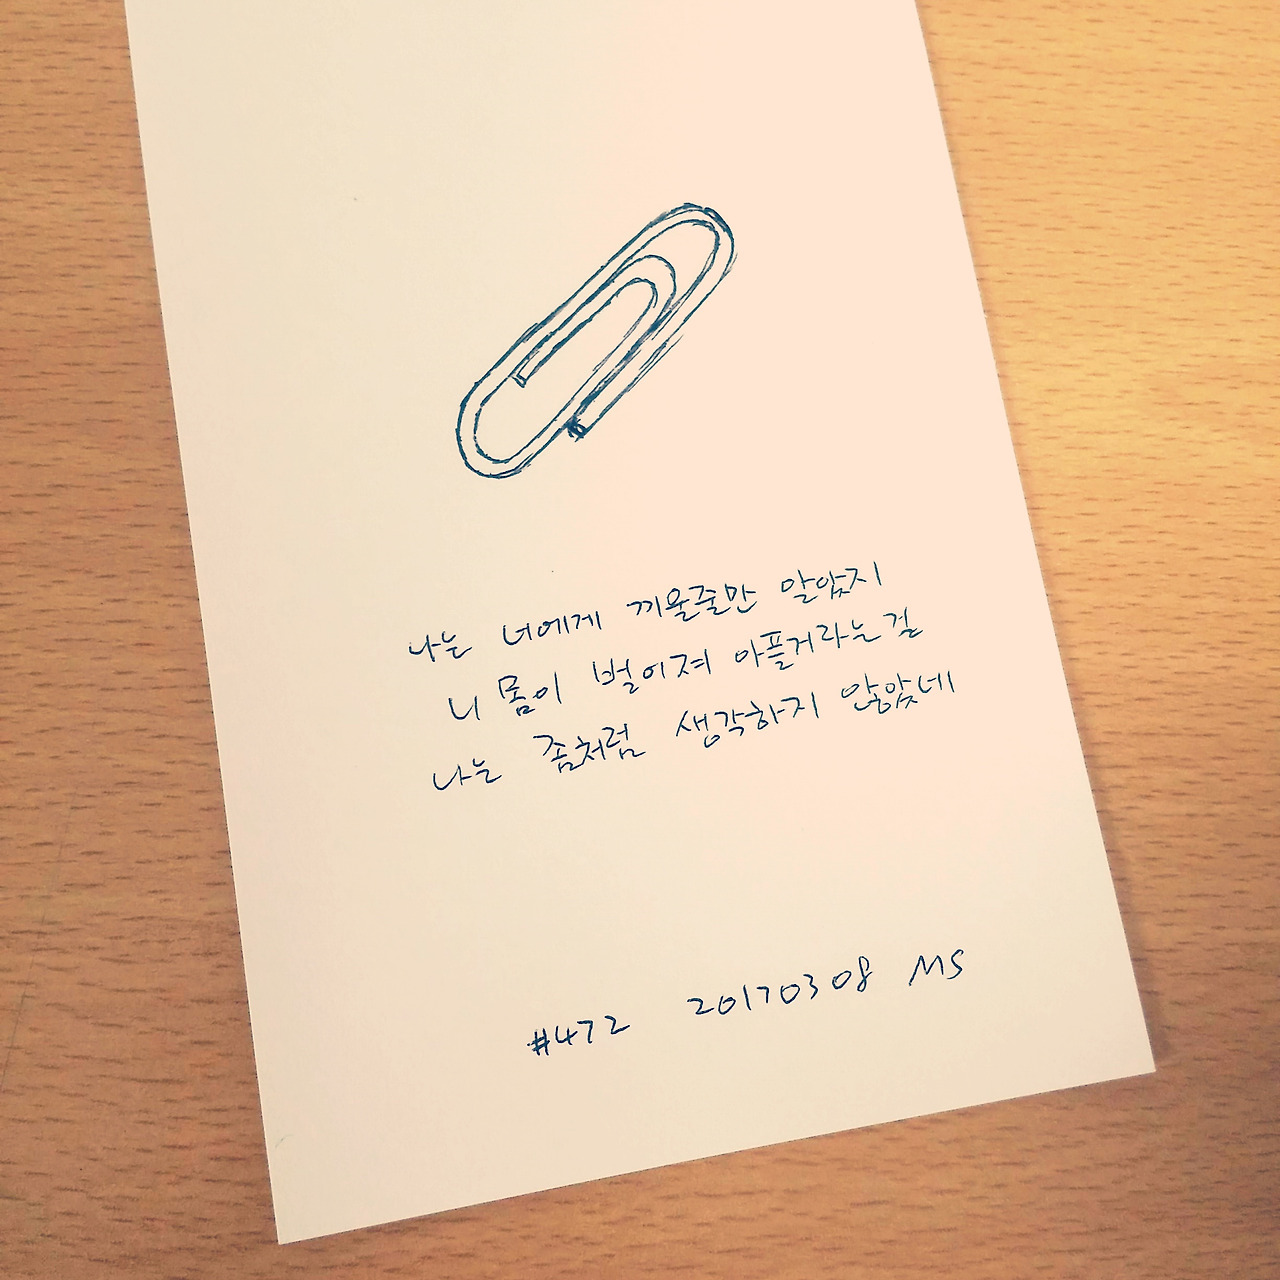 나는 너에게 끼울줄만 알았지
니 몸이 벌어져 아플거라는걸
나는 좀처럼 생각하지 않았네
#472 20170308 MS